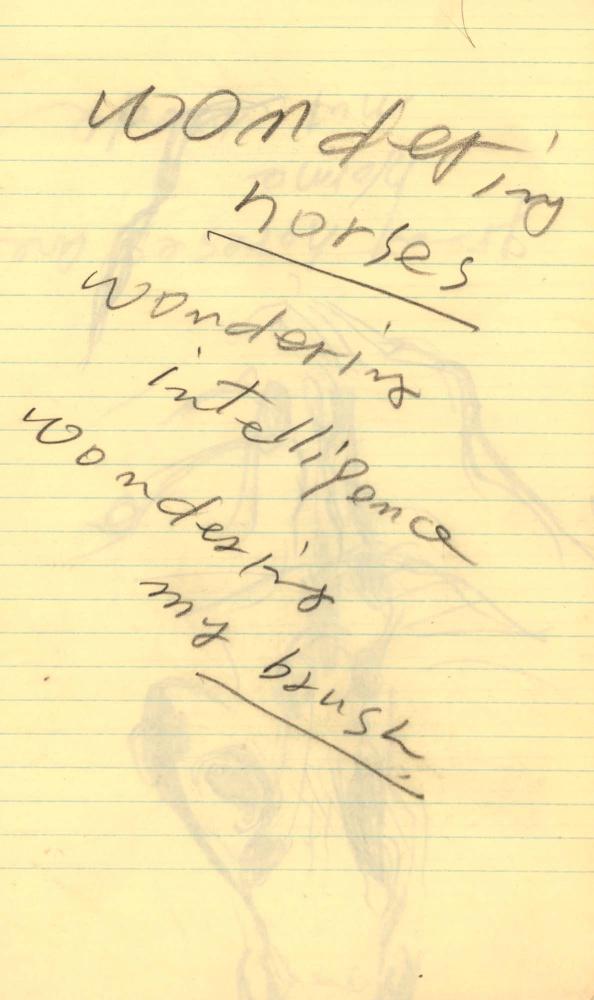 wondering
horses
wondering
intelligence
wondering
my brush